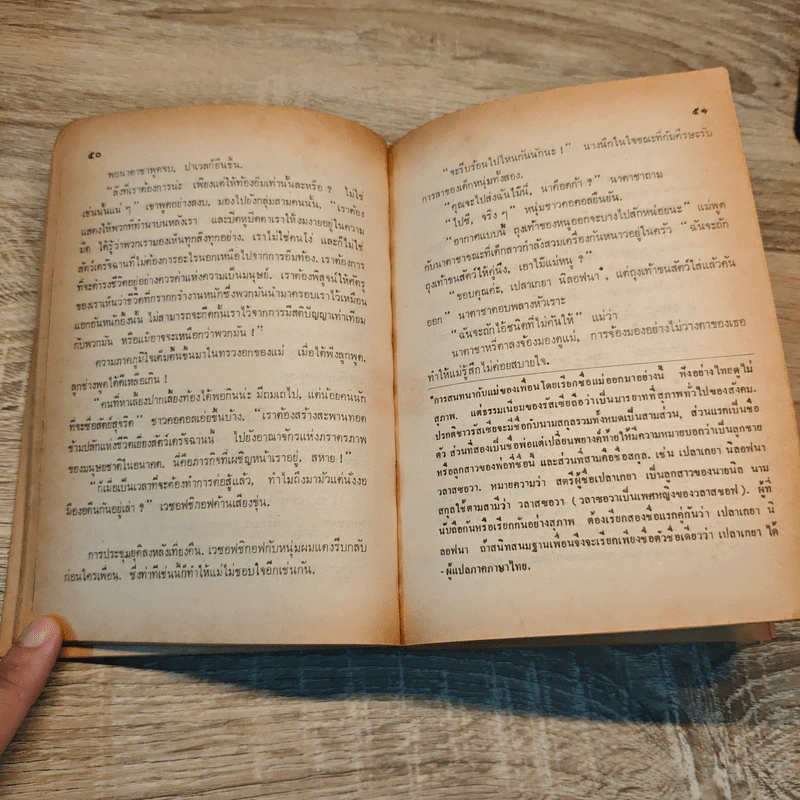 ๕๐
พอนาตาชาพูดจบ, ปาเวลก็ยืนขึ้น.
“สิ่งที่เราต้องการน่ะ เพียงแต่ให้ท้องอิ่มเท่านั้นละหรือ ? ไม่ใช่
เช่นนั้นแน่ ๆ” เขาพูดอย่างสงบ, มองไปยังกลุ่มสามคนนั้น, “เราต้อง
แสดงให้พวกที่ทำนาบนหลังเรา และปิดหูปิดตาเราให้งมงายอยู่ในความ
มืด ได้รู้ว่าพวกเรามองเห็นทุกสิ่งทุกอย่าง. เราไม่ใช่คนโง่ และก็ไม่ใช่
สัตว์เดรัจฉานที่ไม่ต้องการอะไรนอกเหนือไปจากการอิ่มท้อง. เราต้องการ
ที่จะดำรงชีวิตอยู่อย่างควรค่าแห่งความเป็นมนุษย์. เราต้องพิสูจน์ให้ศัตรู
ของเราเห็นว่าชีวิตที่ตรากตรำงานหนักซึ่งพวกมันนำมาครอบเราไว้เหมือน
แอกอันหนักอึ้งนั้น ไม่สามารถจะกีดกั้นเราไว้จากการมีสติปัญญาเท่าเทียม
กับพวกมัน หรือแม้อาจจะเหนือกว่าพวกมัน !”
ความภาคภูมิใจเต็มตื้นขึ้นมาในทรวงอกของแม่ เมื่อได้ฟังลูกพูด.
ลูกช่างพูดได้ดีเหลือเกิน !
“คนที่หาเลี้ยงปากเลี้ยงท้องได้พอกินน่ะ มีถมเถไป, แต่น้อยคนนัก
ที่จะซื่อสัตย์สุจริต” ชาวคอคอลเอ่ยขึ้นบ้าง. “เราต้องสร้างสะพานทอด
ข้ามปลักแห่งชีวิตเยี่ยงสัตว์เดรัจฉานนี้ ไปยังอาณาจักรแห่งภราดรภาพ
ของมนุษยชาติในอนาคต. นี่คือภารกิจที่เผชิญหน้าเราอยู่, สหาย !”
“ก็เมื่อเป็นเวลาที่จะต้องทำการต่อสู้แล้ว, ทำไมถึงมามัวแต่นั่งงอ
มืองอตีนกันอยู่เล่า ?” เวซอฟชิกอฟค้านเสียงขุ่น.
การประชุมยุติลงหลังเที่ยงคืน. เวซอฟชิกอฟกับหนุ่มผมแดงรีบกลับ
ก่อนใครเพื่อน. ซึ่งท่าทีเช่นนี้ก็ทำให้แม่ไม่ชอบใจอีกเช่นกัน.
๕๑
“จะรีบร้อนไปไหนกันนักนะ !” นางนึกในใจขณะที่ก้มศีรษะรับ
การลาของเด็กหนุ่มทั้งสอง.
“คุณจะไปส่งฉันไม๊นี่, นาค็อดก้า ?” นาตาชาถาม
“ไปซี, จริง ๆ” หนุ่มชาวคอคอลยืนยัน.
“อากาศแบบนี้ ถุงเท้าของหนูออกจะบางไปสักหน่อยนะ” แม่พูด
กับนาตาชาขณะที่เด็กสาวกำลังสวมเครื่องกันหนาวอยู่ในครัว “ฉันจะถัก
ถุงเท้าขนสัตว์ให้คู่นึ่ง, เอาไม๊แม่หนู ?”
“ขอบคุณค่ะ, เปลาเกยา นิลอฟนา*, แต่ถุงเท้าขนสัตว์ใส่แล้วคัน
ออก” นาตาชาตอบพลางหัวเราะ
“ฉันจะถักไอ้ชนิดที่ไม่คันให้” แม่ว่า
นาตาชาหรี่ตาลงจ้องมองดูแม่, การจ้องมองอย่างไม่วางตาของเธอ
ทำให้แม่รู้สึกไม่ค่อยสบายใจ.
*การสนทนากับแม่ของเพื่อนโดยเรียกชื่อแม่ออกมาอย่างนี้ ฟังอย่างไทยดูไม่
สุภาพ. แต่ธรรมเนียมของรัสเซียถือว่าเป็นมารยาทที่สุภาพทั่วไปของสังคม.
ปรกติชาวรัสเซียจะมีชื่อกับนามสกุลรวมทั้งหมดเป็นสามส่วน, ส่วนแรกเป็นชื่อ
ตัว ส่วนที่สองเป็นชื่อพ่อแต่เปลี่ยนพยางค์ท้ายให้มีความหมายบอกว่าเป็นลูกชาย
หรือลูกสาวของพ่อที่ชื่อนี้ และส่วนที่สามคือชื่อสกุล. เช่น เปลาเกยา นิลอฟนา
วลาสซอวา. หมายความว่า สตรีผู้ชื่อเปลาเกยา เป็นลูกสาวของนายนิล นาม
สกุลใช้ตามสามีว่า วลาสซอวา (วลาซอวาเป็นเพศหญิงของวลาสซอฟ). ผู้ที่
นับถือกันหรือเรียกกันอย่างสุภาพ ต้องเรียกสองชื่อแรกคู่กันว่า เปลาเกยา นิ
ลอฟนา ถ้าสนิทสนมฐานเพื่อนจึงจะเรียกเพียงชื่อตัวชื่อเดียวว่า เปลาเกยา ได้
-ผู้แปลภาคภาษาไทย.